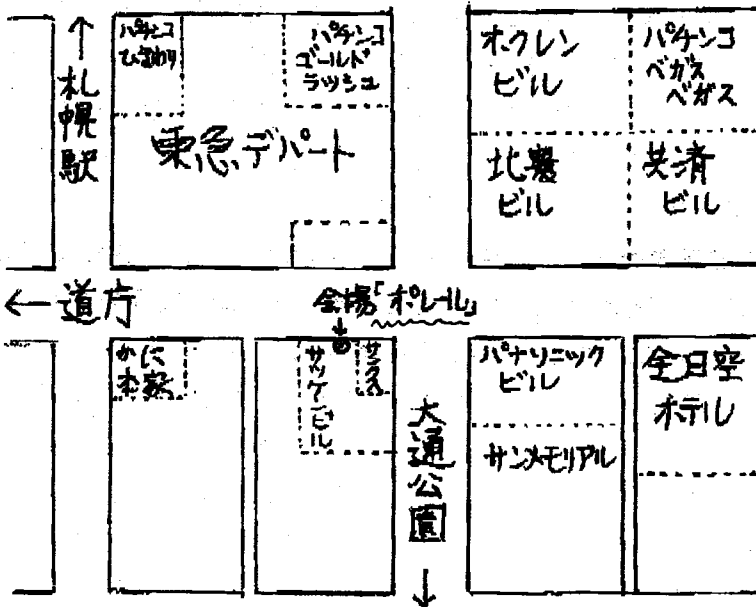 ↑
札幌駅
パチンコ
ひまわり
パチンコ
ゴールド
ラッシュ
東急デパート
ホクレン
ビル
パチンコ
ベガス
ベガス
北農
ビル
共済
ビル
←道庁
会場「ポレール」
↓
かに
本家
サツケンビル
サンクス
大通公園
↓
パナソニック
ビル
サンメモリアル
全日空
ホテル